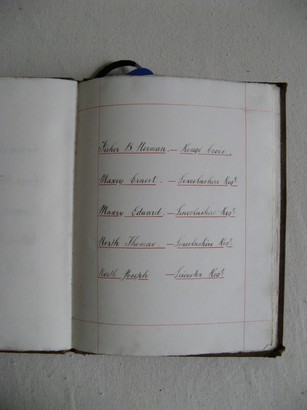 Fisher B Norman. —
Maxey Ernest. — Lincolnshire Regt.
Maxey Edward. — Lincolnshire Regt.
North Thomas. — Lincolnshire Regt.
North Joseph — Leicester Regt.